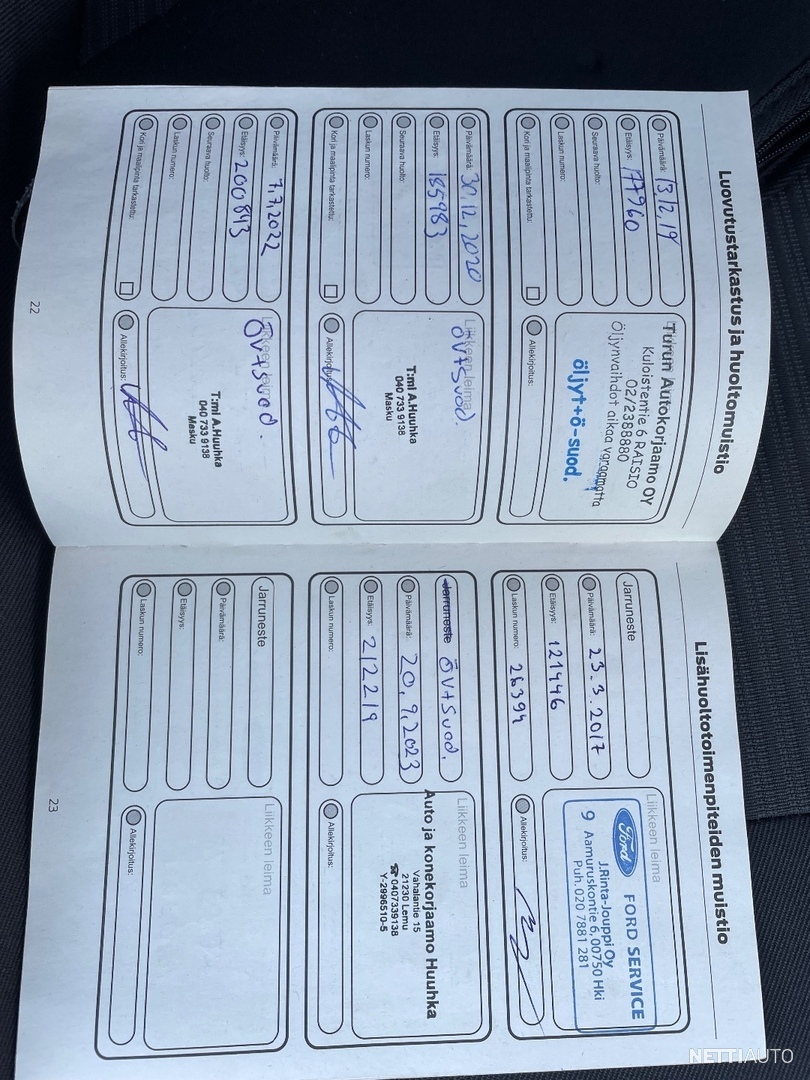 Luovutustarkastus ja huoltomuistio
Päivämäärä: 13.12.19
Etäisyys: 177960
Seuraava huolto:
Laskun numero:
Kori ja maalipinta tarkastettu:
Turun Autokorjaamo OY
Kuloistentie 6 RAISIO
02/2388880
Öljynvaihdot aikaa varaamatta
öljyt+ö-suod.
Allekirjoitus:
Päivämäärä: 30.12.2020
Etäisyys: 185983
Seuraava huolto:
Laskun numero:
Kori ja maalipinta tarkastettu:
Liikkeen leima
ÖV+Suod.
T:mi A.Huuhka
040 733 9138
Masku
Allekirjoitus:
Päivämäärä: 7.7.2022
Etäisyys: 200843
Seuraava huolto:
Laskun numero:
Kori ja maalipinta tarkastettu:
Liikkeen leima
ÖV+Suod.
T:mi A.Huuhka
040 733 9138
Masku
Allekirjoitus:
22
Lisähuoltotoimenpiteiden muistio
Jarruneste
Päivämäärä: 23.3.2017
Etäisyys: 121446
Laskun numero: 26394
Liikkeen leima
Ford
FORD SERVICE
J.Rinta-Jouppi Oy
9 Aamuruskontie 6, 00750 Hki
Puh. 020 7881 281
Allekirjoitus:
Jarruneste ÖV+Suod.
Päivämäärä: 20.9.2023
Etäisyys: 212219
Laskun numero:
Liikkeen leima
Auto ja konekorjaamo Huuhka
Vahalantie 15
21230 Lemu
☎ 0407339138
Y-2996510-5
Allekirjoitus:
Jarruneste
Päivämäärä:
Etäisyys:
Laskun numero:
Liikkeen leima
Allekirjoitus:
23
NETTIAUTO